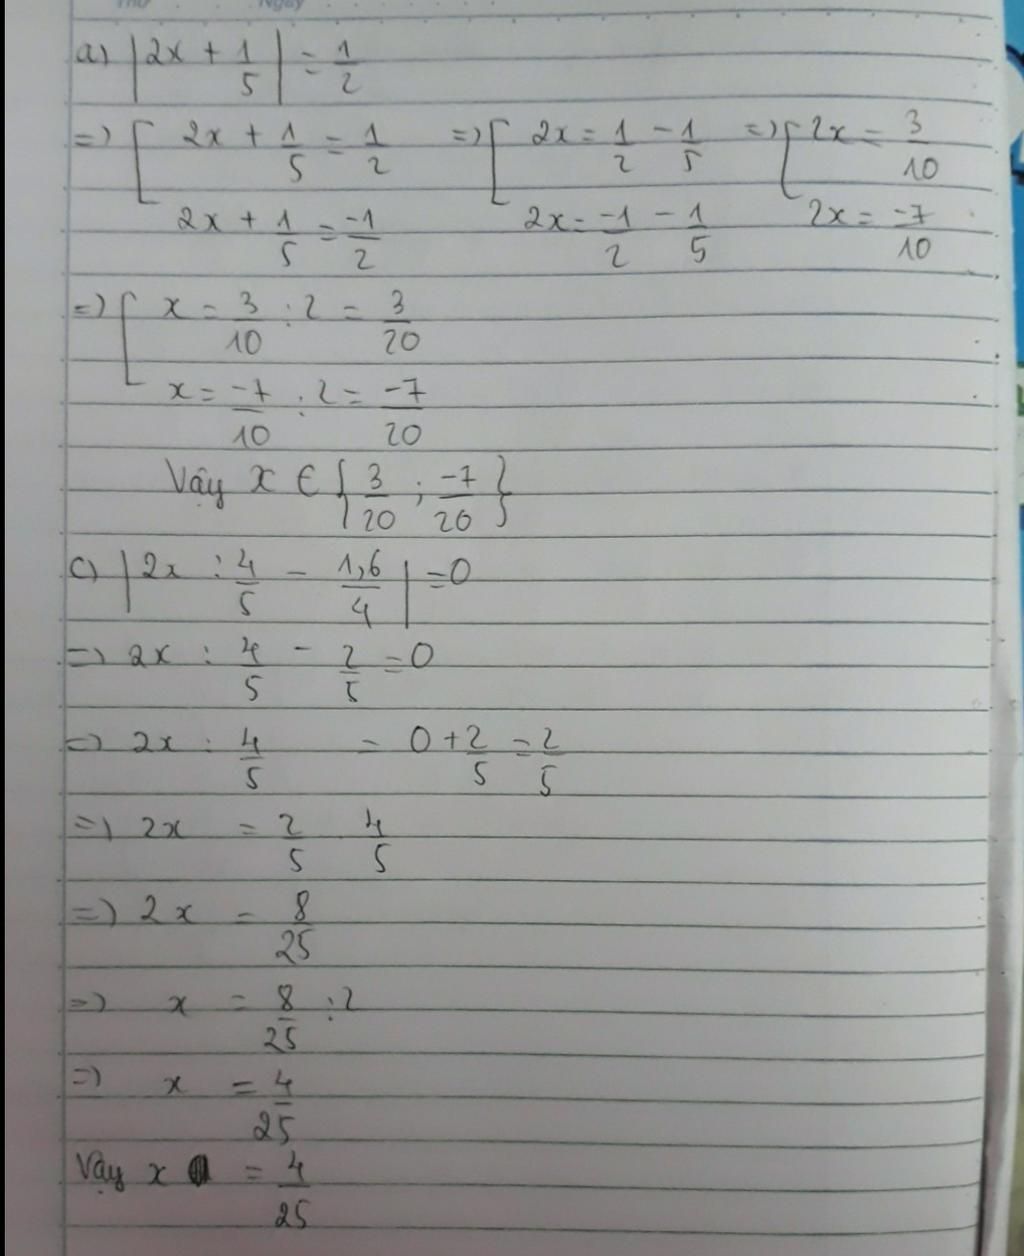 Thứ Ngày
a) |2x + 1/5| = 1/2
=> [ 2x + 1/5 = 1/2 => [ 2x = 1/2 - 1/5 => [ 2x = 3/10
2x + 1/5 = -1/2 2x = -1/2 - 1/5 2x = -7/10
=> [ x = 3/10 : 2 = 3/20
x = -7/10 : 2 = -7/20
Vậy x ∈ {3/20 ; -7/20}
c) |2x : 4/5 - 1,6/4| = 0
=> 2x : 4/5 - 2/5 = 0
=> 2x : 4/5 = 0 + 2/5 = 2/5
=> 2x = 2/5 4/5
=> 2x = 8/25
=> x = 8/25 : 2
=> x = 4/25
Vậy x = 4/25